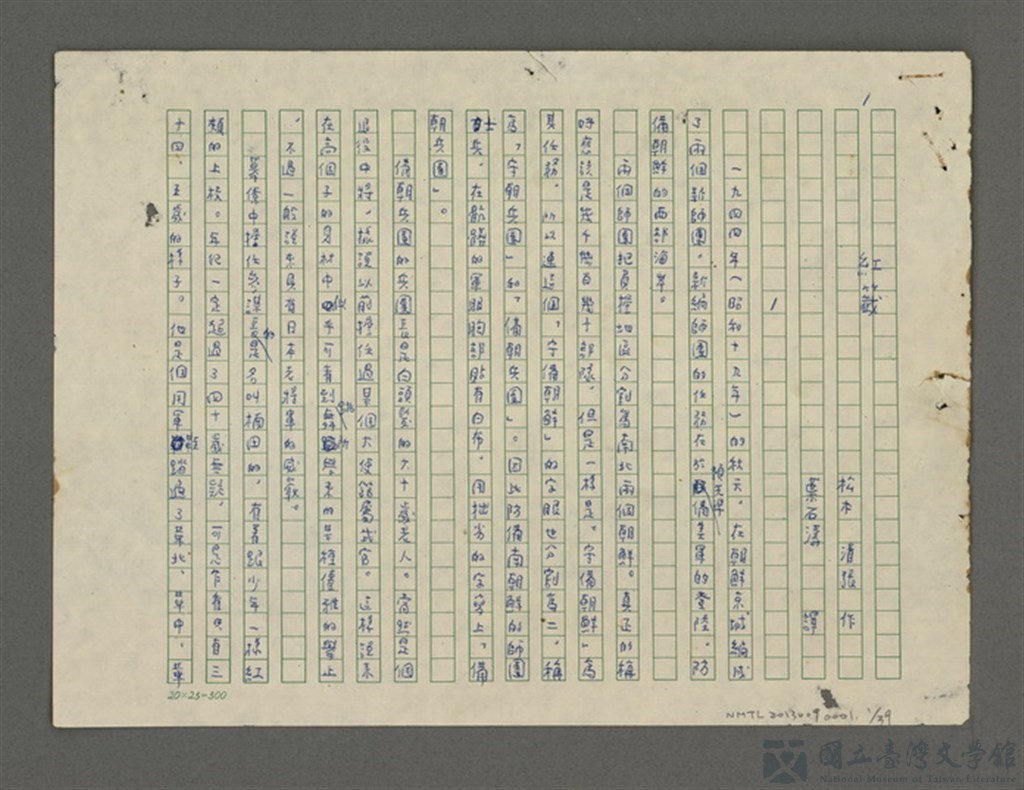 1
紅籤
松本 清張 作
葉石濤 譯
1
一九四四年(昭和十九年)的秋天。在朝鮮京城編成
了兩個新師團。新編師團的任務在於預先防備美軍的登陸。防
備朝鮮的西部海岸。
兩個師團把負擔地區分割為南北兩個朝鮮。真正的稱
呼應該是幾千幾百幾十部隊。但是一樣是「守備朝鮮」為
其任務。所以連這個「守備朝鮮」的字眼也分割為二。稱
為「守朝兵團」和「備朝兵團」。因此防備南朝鮮的師團
士兵。在骯髒的軍服胸部貼有白布。用拙劣的字寫上「備
朝兵團」。
備朝兵團的兵團長是白頭髮的六十歲老人。當然是個
退役中將。據說以前擔任過某個大使館駐武官。這樣說來
在高個子的身材中似乎可看到無所學來的某種優雅的舉止
。不過一般說來具有日本老將軍的風貌。
幕僚中擔任參謀長的是名叫楠田的。有著跟少年一樣紅
頰的上校。年紀一定超過了四十歲無疑。可是乍看只有三
十四、五歲的樣子。他是個用軍靴踏過了華北、華中、華
20×25=500
NMTL 20130090001. 1/39
國立臺灣文學館
National Museum of Taiwan Literature